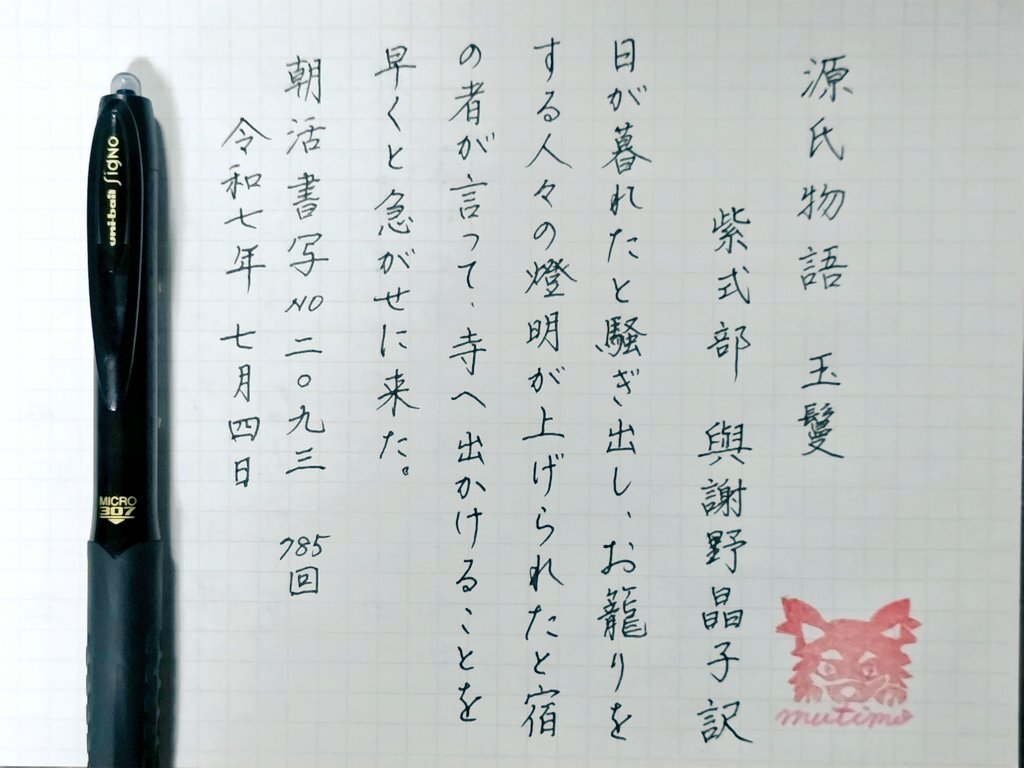 源氏物語　玉鬘
紫式部　與謝野晶子訳
日が暮れたと騒ぎ出し、お籠りを
する人々の燈明が上げられたと宿
の者が言って、寺へ出かけることを
早くと急がせに来た。
朝活書写NO二〇九三　785回
令和七年　七月四日
uni-ball Signo
MICRO
307
mutimo